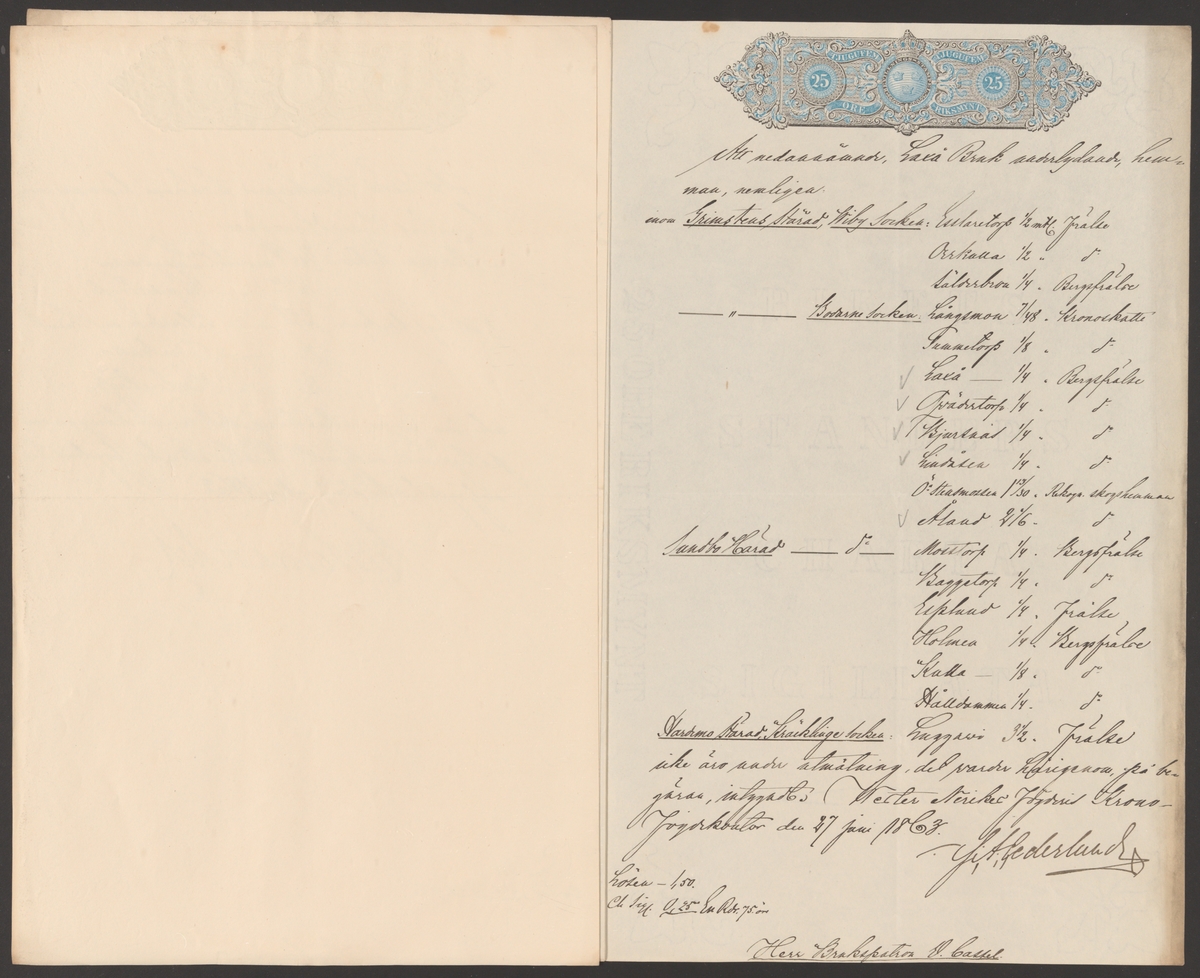 TJUGUFEM TJUGUFEM
25 25
ÖRE RIKSMYNT
Att nedannämnde, Laxå Bruk underlydande, hem-
man, nemligen:
inom Grimstens Härad, Wiby Socken: Esslaretorp 1/2 mtl. Frälse
Örskulla 1/2 " d:o
Sälderbron 1/4 " Bergsfrälse
— " — Bodarne Socken: Långsmon 7/48 " Kronoskatte
Tummetorp 1/8 " d:o
Laxå — 1/4 " Bergsfrälse
Trädertorp 1/4 " d:o
Bjurtnäs 1/4 " d:o
Lindåsen 1/4 " d:o
Ö. Stensmossen 1 13/30 " Rekogn. skogshemman
Åland 2 1/6 " d:o
Sundbo Härad — d:o — Mosstorp 1/4 " Bergsfrälse
Baggetorp 1/4 " d:o
Esplund 1/4 " Frälse
Holmen 1/4 " Bergsfrälse
Kulla — 1/8 " d:o
Hålldammen 1/4 " d:o
Hardemo Härad, Kräcklinge Socken: Luggavi 3 1/2 " Frälse
icke äro under utmätning, det varder härigenom, på be-
gäran, intygadt; Wester Nerikes Fögderis Krono-
Fogdekontor den 27 juni 1863.
G. A. Cederlund
Lösen — 1,50.
Ch. Sigl. 0,25 En Rdr. 75 öre
Herr Brukspatron O. Cassel